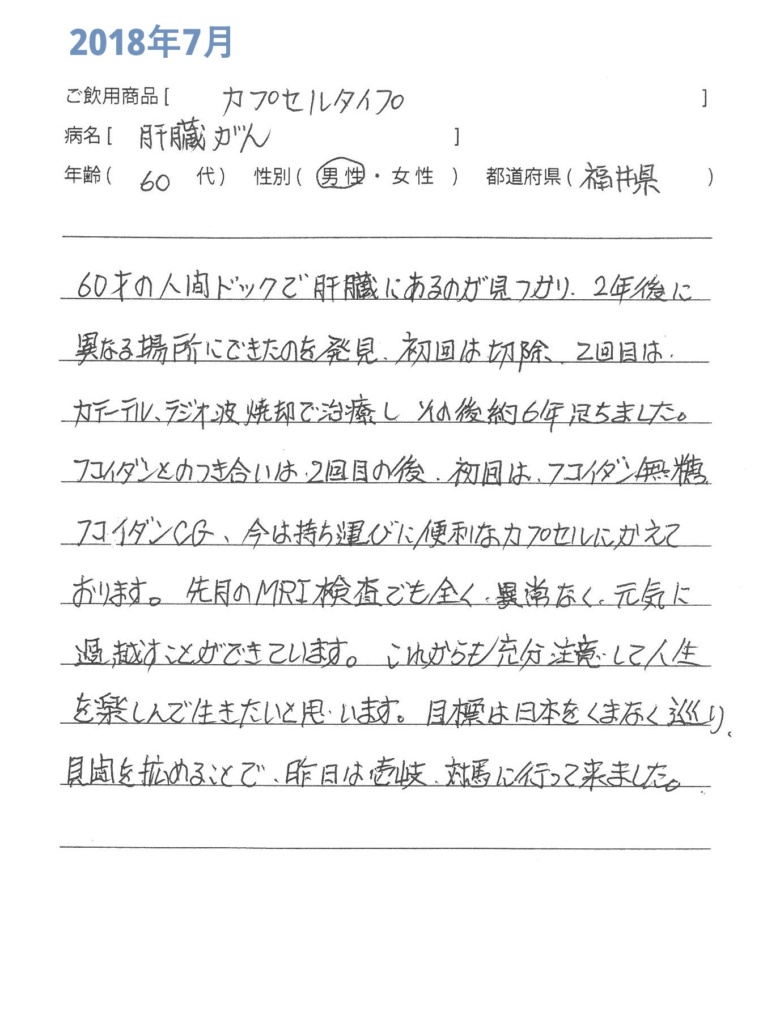 2018年7月
ご飲用商品[ カプセルタイプ ]
病名[ 肝臓がん ]
年齢( 60 代) 性別( 男性・女性 ) 都道府県( 福井県 )
60才の人間ドックで肝臓にあるのが見つかり、2年後に
異なる場所にできたのを発見、初回は切除、2回目は、
カテーテル、ラジオ波焼却で治療し その後約6年足ちました。
フコイダンとのつき合いは、2回目の後、初回は、フコイダン無糖、
フコイダンCG、今は持ち運びに便利なカプセルにかえて
おります。先月のMRI検査でも全く、異常なく、元気に
過越すことができています。これからも充分注意して人生
を楽しんで生きたいと思います。目標は日本をくまなく巡り、
見固を拡めることで、昨日は壱岐、対馬に行って来ました。